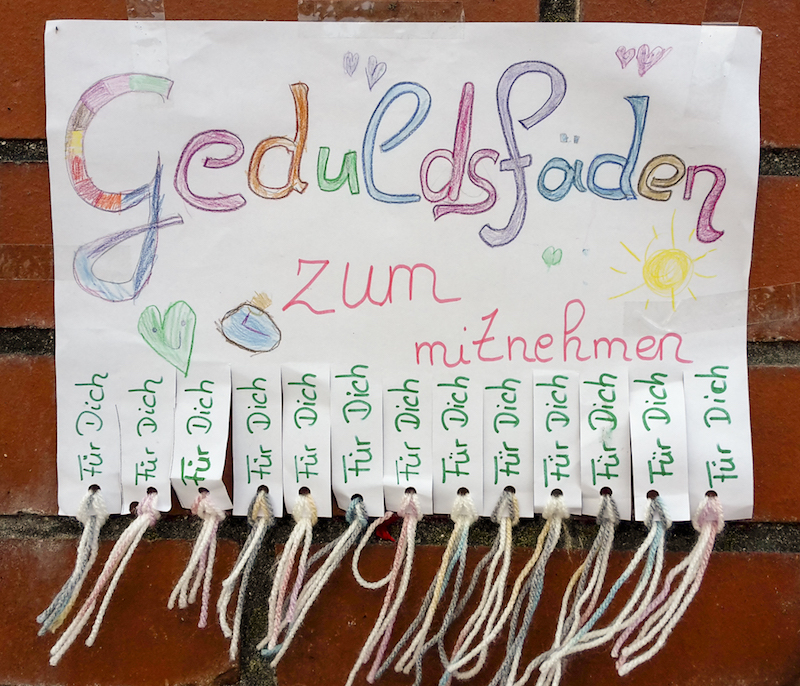 Geduldsfäden
zum
mitnehmen
Für Dich
Für Dich
Für Dich
Für Dich
Für Dich
Für Dich
Für Dich
Für Dich
Für Dich
Für Dich
Für Dich
Für Dich
Für Dich